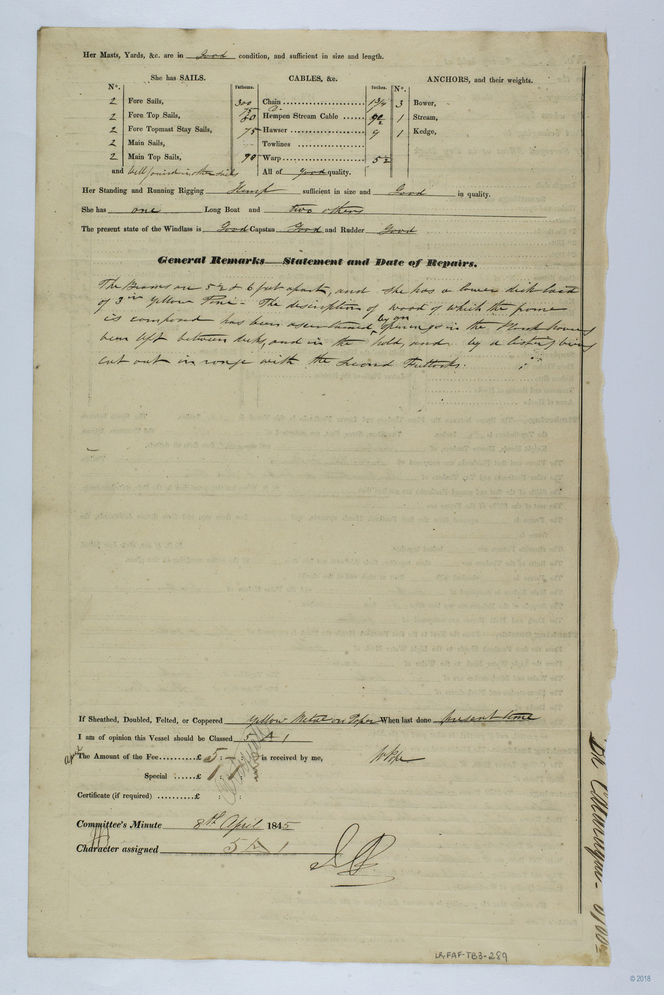 Her Masts, Yards, &c. are in Good condition, and sufficient in size and length.
She has SAILS. CABLES, &c. ANCHORS, and their weights.
N°. Fathoms. Inches. N°.
2 Fore Sails, 300 Chain 3 Bower,
2 Fore Top Sails, 75 80 Hempen Stream Cable 1 Stream,
2 Fore Topmast Stay Sails, 75 Hawser 9 1 Kedge,
2 Main Sails, Towlines
2 Main Top Sails, 90 Warp 5½
and Well found in other sails All of good quality.
Her Standing and Running Rigging Hemp sufficient in size and Good in quality.
She has one Long Boat and two others
The present state of the Windlass is Good Capstan Good and Rudder Good
General Remarks—Statement and Date of Repairs.
The Beams are 5½ & 6 feet apart, and she has a lower deck laid
of 3 in Yellow Pine - The description of wood of which the frame
is composed has been ascertained by openings in the Plank having
been left between decks, and in the hold, and by a listing being
cut out in range with the Second Futtocks.
If Sheathed, Doubled, Felted, or Coppered Yellow Metal on Paper When last done present time
I am of opinion this Vessel should be Classed A 1
The Amount of the Fee £ 5 : - : - is received by me,
Special £ 1 : 1 : -
Certificate (if required) £ : :
Committee's Minute 8th April 1845
Character assigned 5 A 1
LR-FAF-TB3-289
© 2018